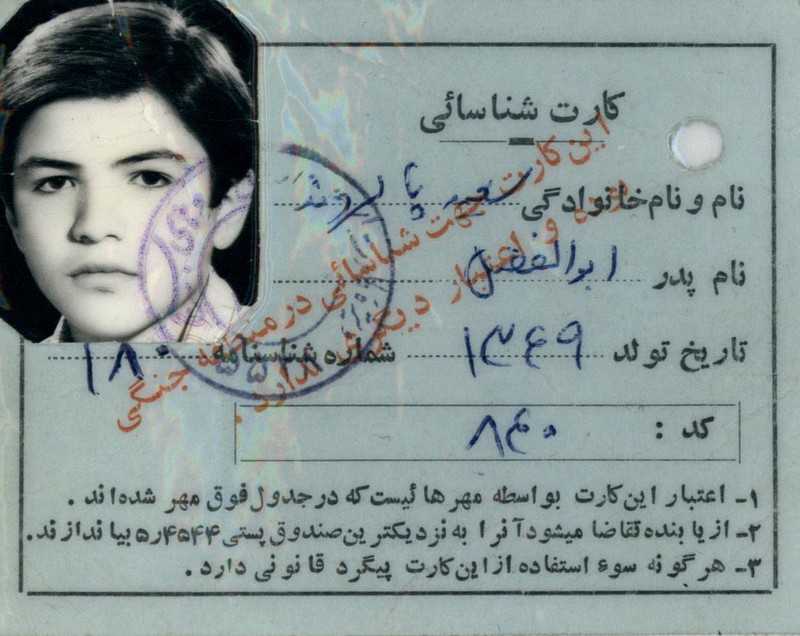 کارت شناسائی
نام و نام خانوادگی سعید پا
نام پدر ابوالفضل
تاریخ تولد ۱۳۴۹ شماره شناسنامه ۱۸۰
کد : ۸۴۰
۱ـ اعتبار این کارت بواسطه مهرهائیست که در جدول فوق مهر شده اند .
۲ـ از یابنده تقاضا میشود آنرا به نزدیکترین صندوق پستی ۵ر۴۵۴۴ بیاندازند.
۳ـ هرگونه سوء استفاده از این کارت پیگرد قانونی دارد .
این کارت جهت شناسائی در جنگی
بوده و اعتبار دیگری ندارد .